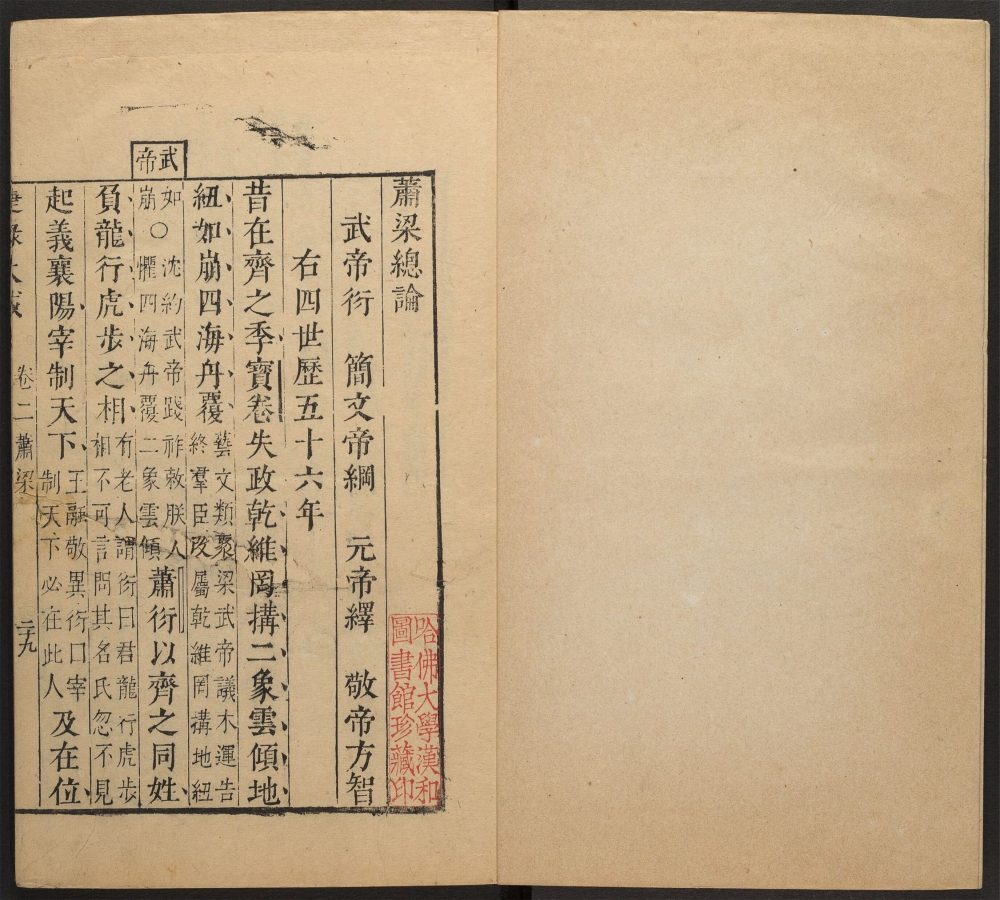 蕭梁總論
武帝衍　簡文帝綱　元帝繹　敬帝方智
右四世歷五十六年
昔在齊之季寶卷失政乾維罔搆二象雲傾地
紐如崩四海舟覆藝文類聚梁武帝議木運告終羣臣改屬乾維罔搆地紐
如崩○沈約武帝踐祚敕朕人懼四海舟覆二象雲傾蕭衍以齊之同姓
武帝
負龍行虎步之相有老人謂衍曰君龍行虎步相不可言問其名氏忽不見
起義襄陽宰制天下王融敬異衍曰宰制天下必在此人及在位
卷二 蕭梁 二十九
哈佛大學漢和圖書館珍藏印